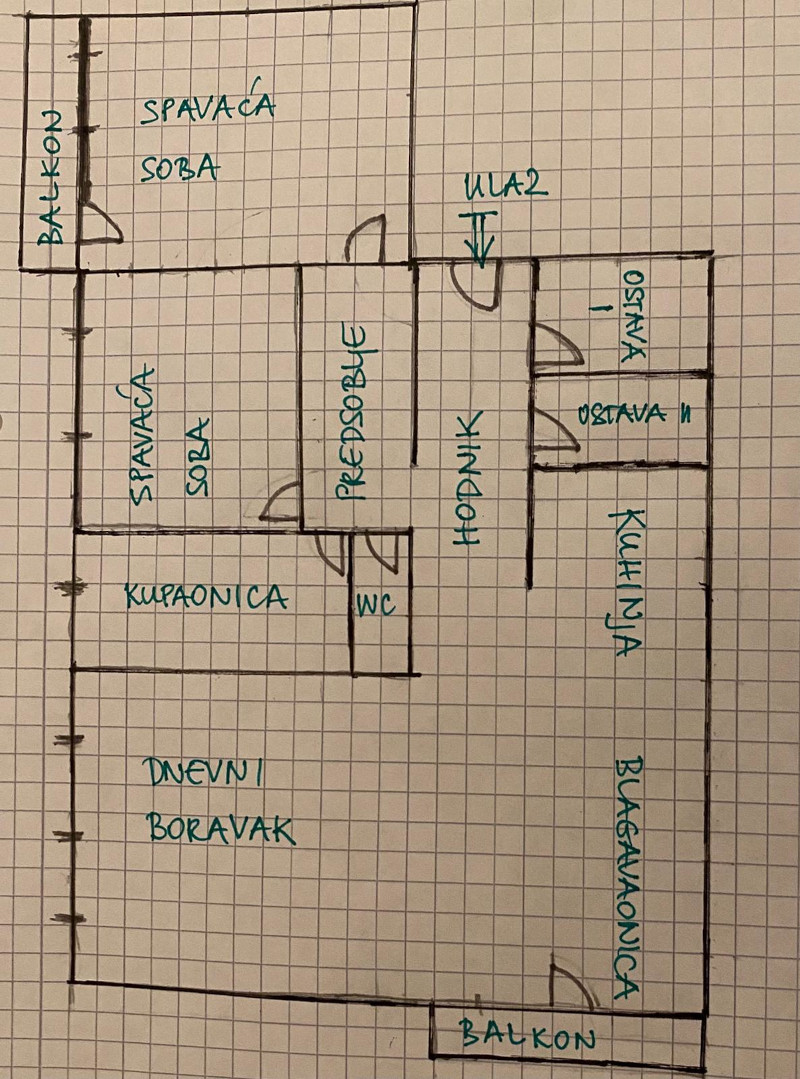 SPAVAĆA
SOBA
BALKON
ULAZ
OSTAVA
I
SPAVAĆA
SOBA
PREDSOBLJE
HODNIK
OSTAVA II
KUHINJA
KUPAONICA
WC
DNEVNI
BORAVAK
BLAGAVAONICA
BALKON